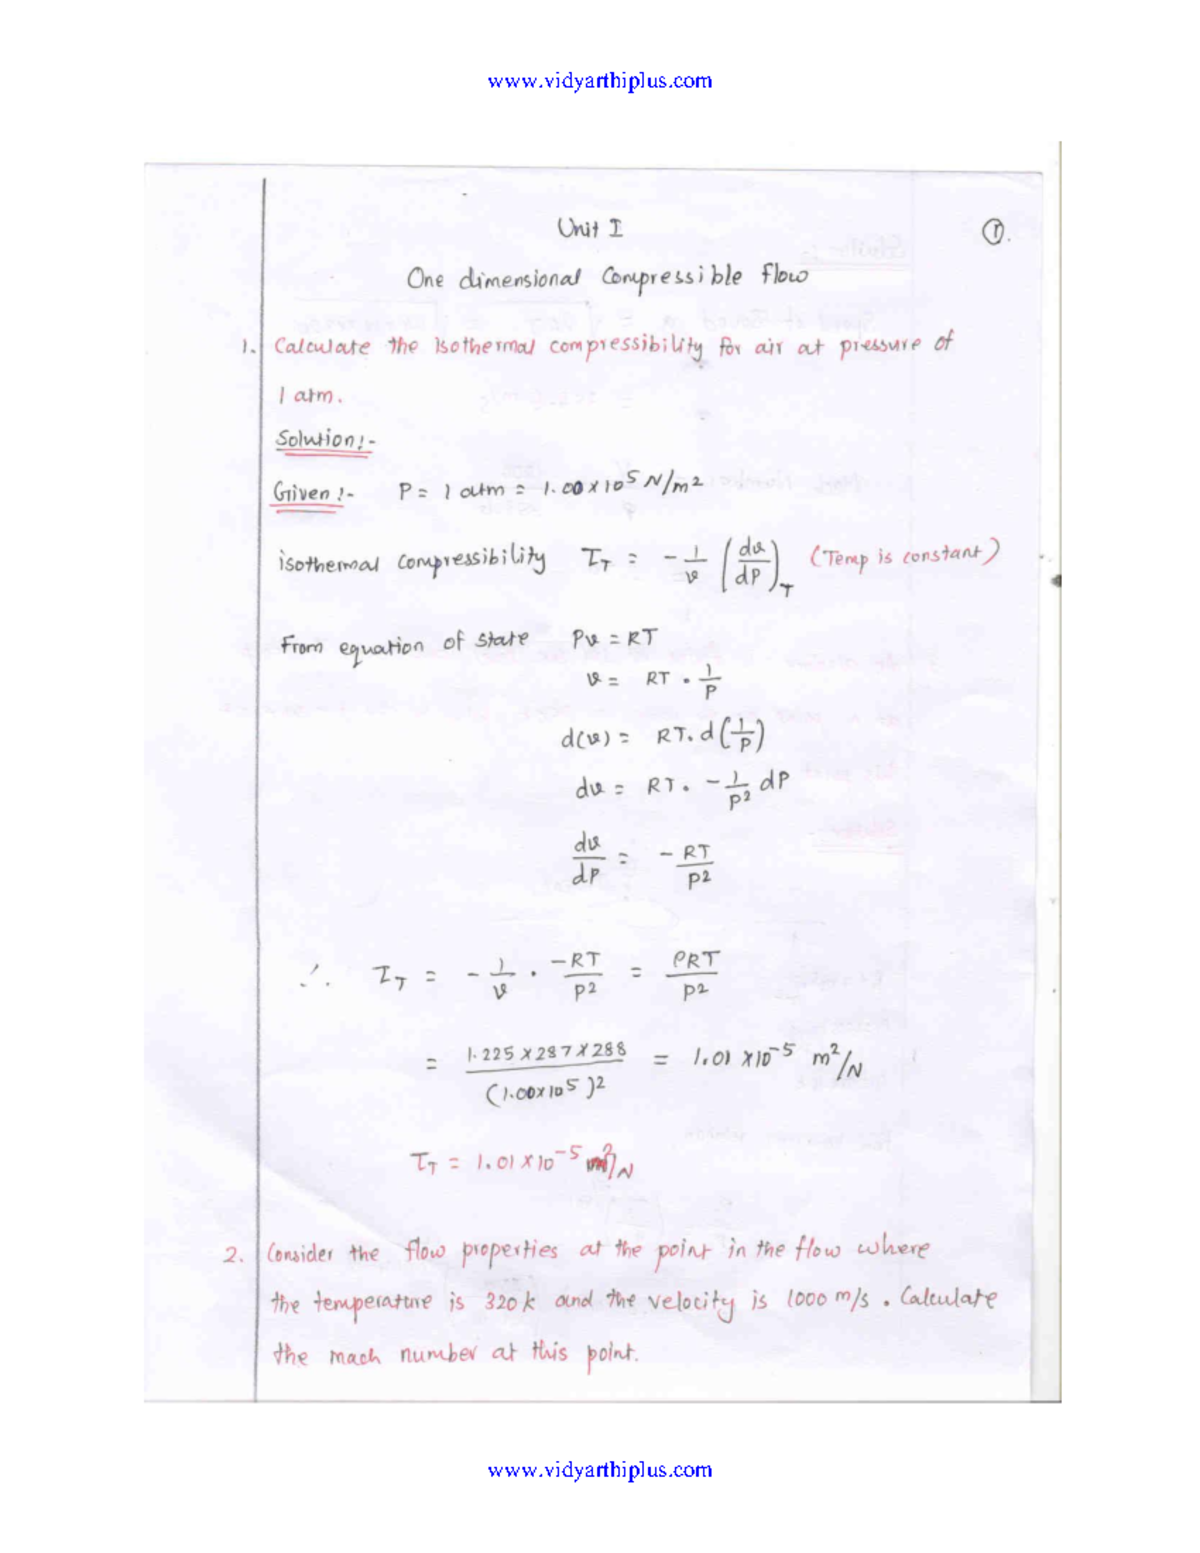 www.vidyarthiplus.com
Unit I
①.
One dimensional Compressible flow
1. Calculate the isothermal compressibility for air at pressure of
1 atm.
Solution:-
Given :- P = 1 atm = 1.00 x 10^5 N/m^2
isothermal compressibility τ_T = - 1/v (dv/dP)_T (Temp is constant)
From equation of state Pv = RT
v = RT . 1/P
d(v) = RT. d(1/P)
dv = RT . - 1/P^2 dP
dv/dP = - RT/P^2
∴ τ_T = - 1/v . -RT/P^2 = ρRT/P^2
= 1.225 x 287 x 288/(1.00x10^5)^2 = 1.01 x10^-5 m^2/N
τ_T = 1.01 x 10^-5 m^2/N
2. Consider the flow properties at the point in the flow where
the temperature is 320 k and the velocity is 1000 m/s . Calculate
the mach number at this point.
www.vidyarthiplus.com